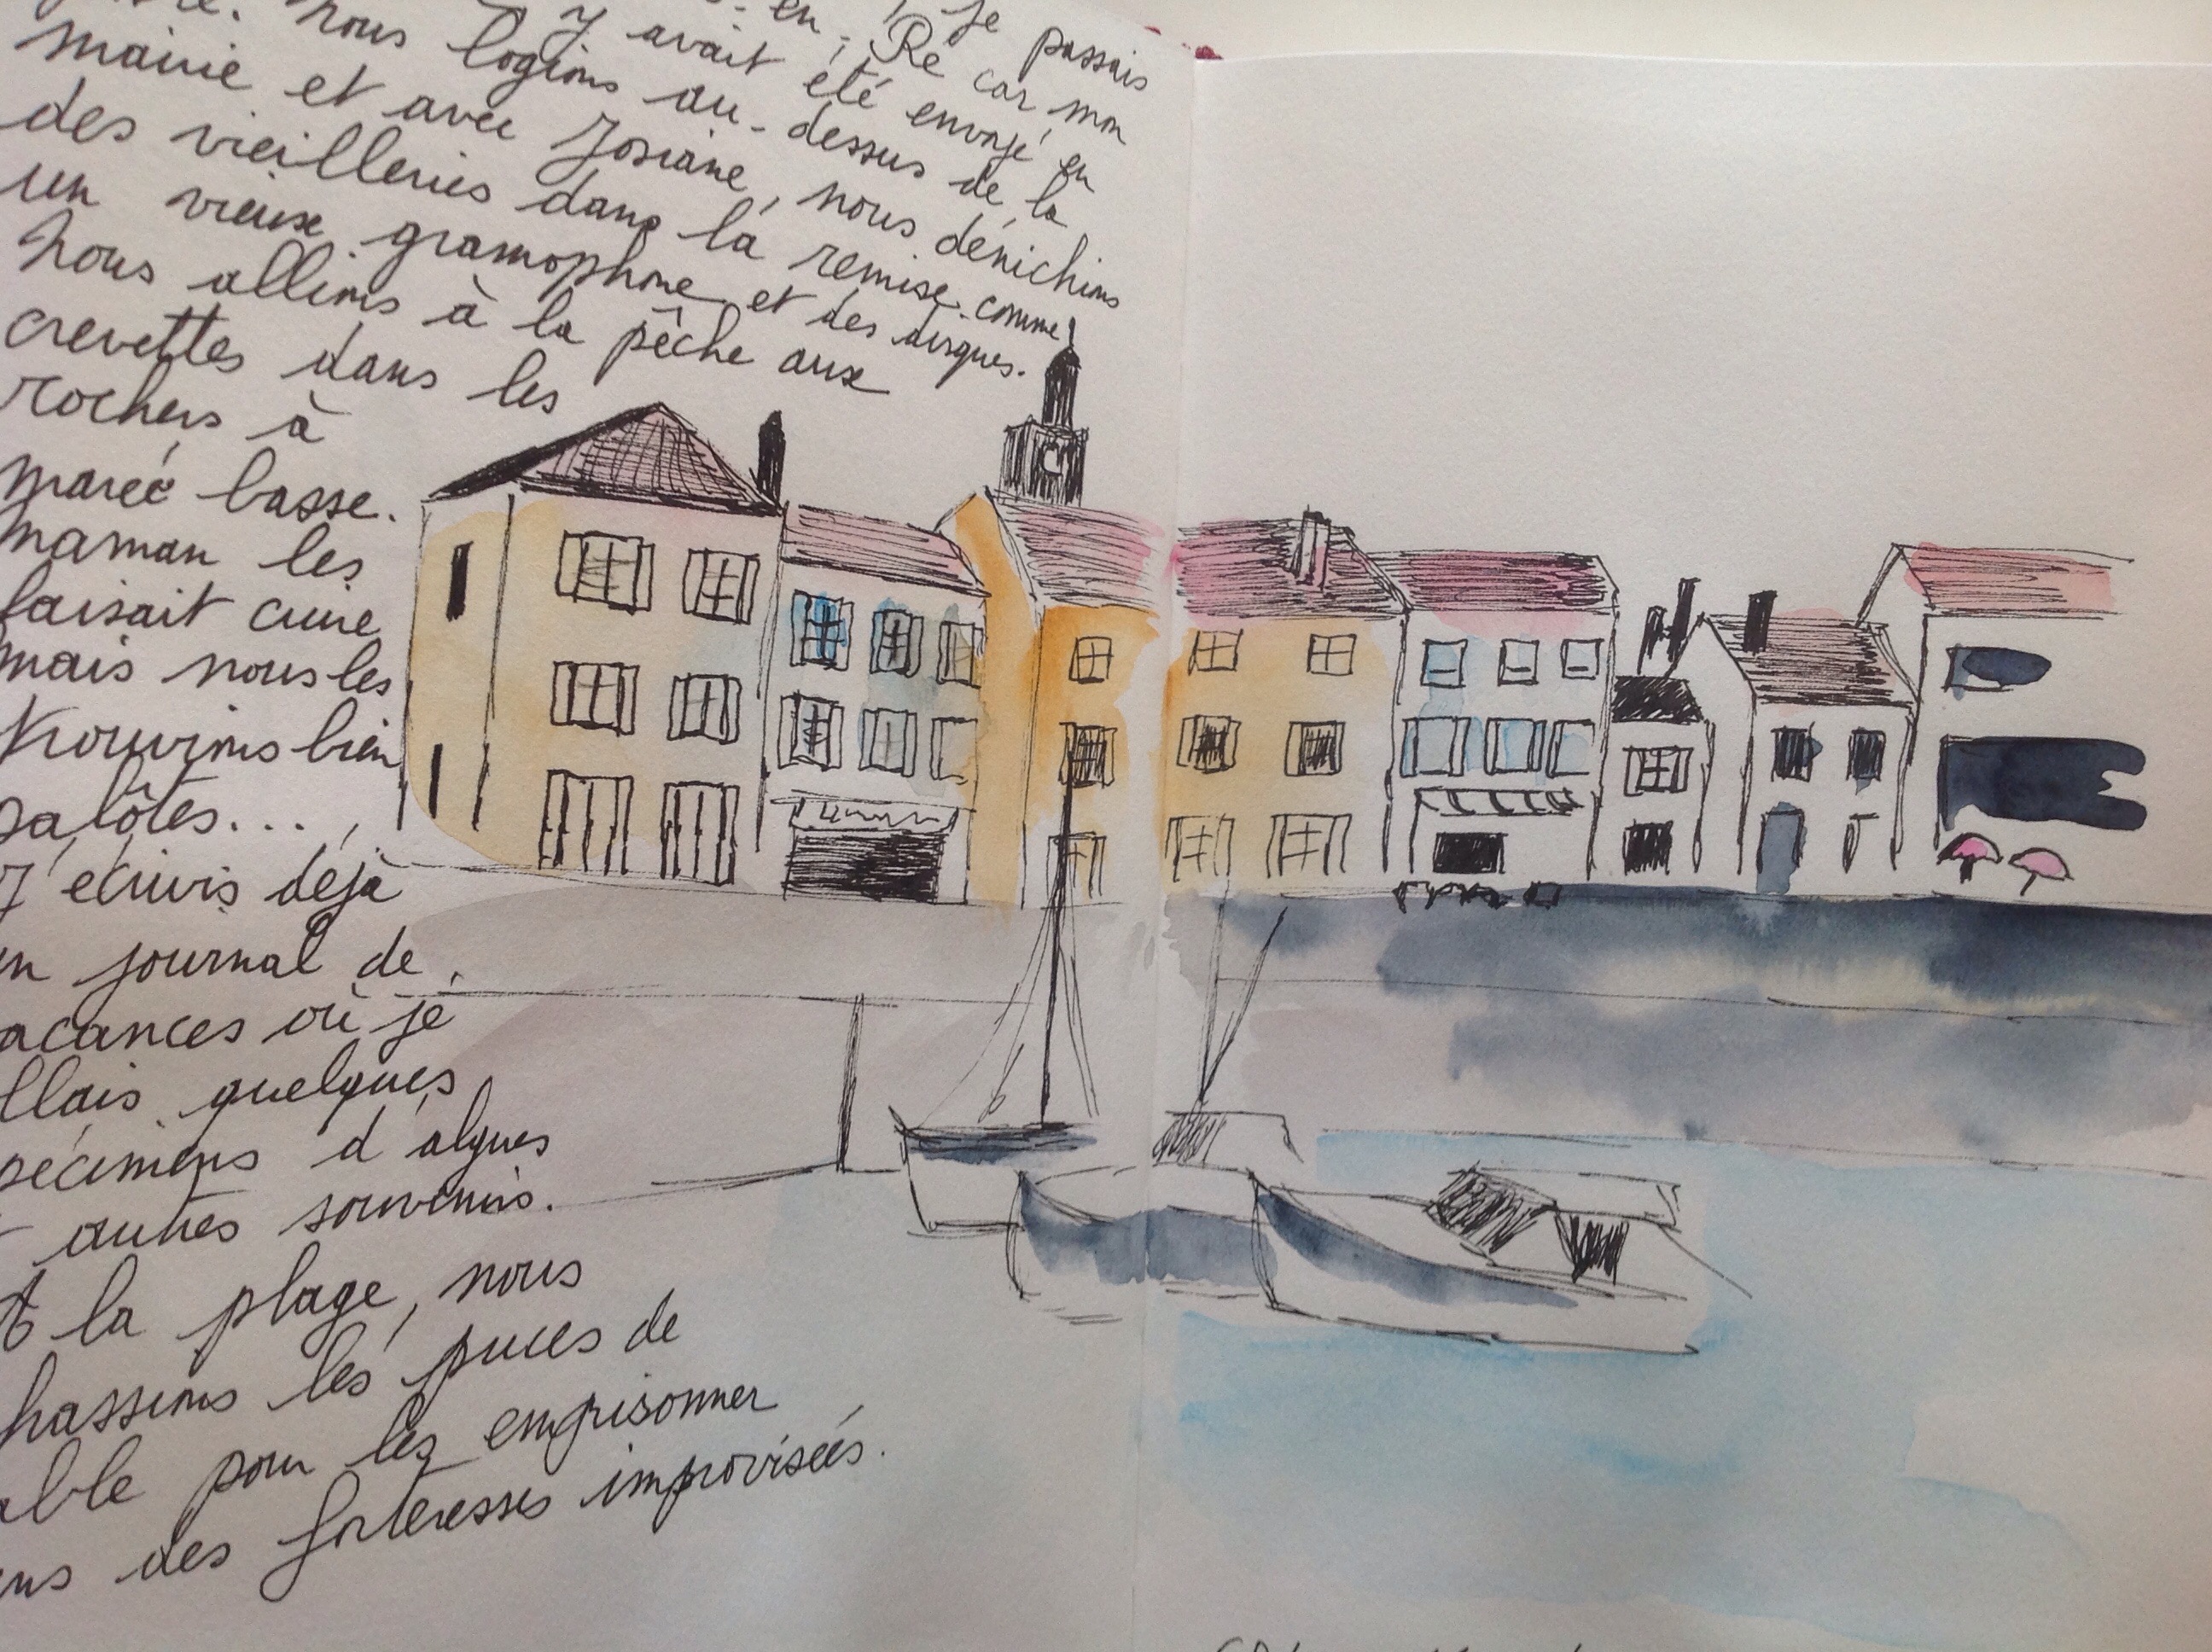 je passais
en Ré car mon
y avait été envoyé en
nous logions au-dessus de la
mairie et avec Josiane, nous dénichions
des vieilleries dans la remise comme
un vieux gramophone et des disques.
Nous allions à la pêche aux
crevettes dans les
rochers à
marée basse.
maman les
faisait cuire
mais nous les
trouvions bien
pâlôtes...
J'écrivis déjà
un journal de
vacances où je
collais quelques
spécimens d'algues
et autres souvenirs.
A la plage, nous
chassions les puces de
sable pour les emprisonner
dans des forteresses improvisées.